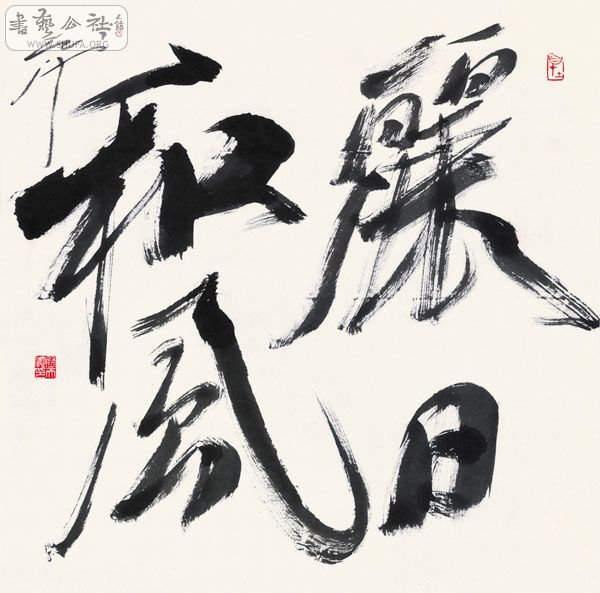 麗日
和風
書藝公社
WWW.SHUFA.ORG